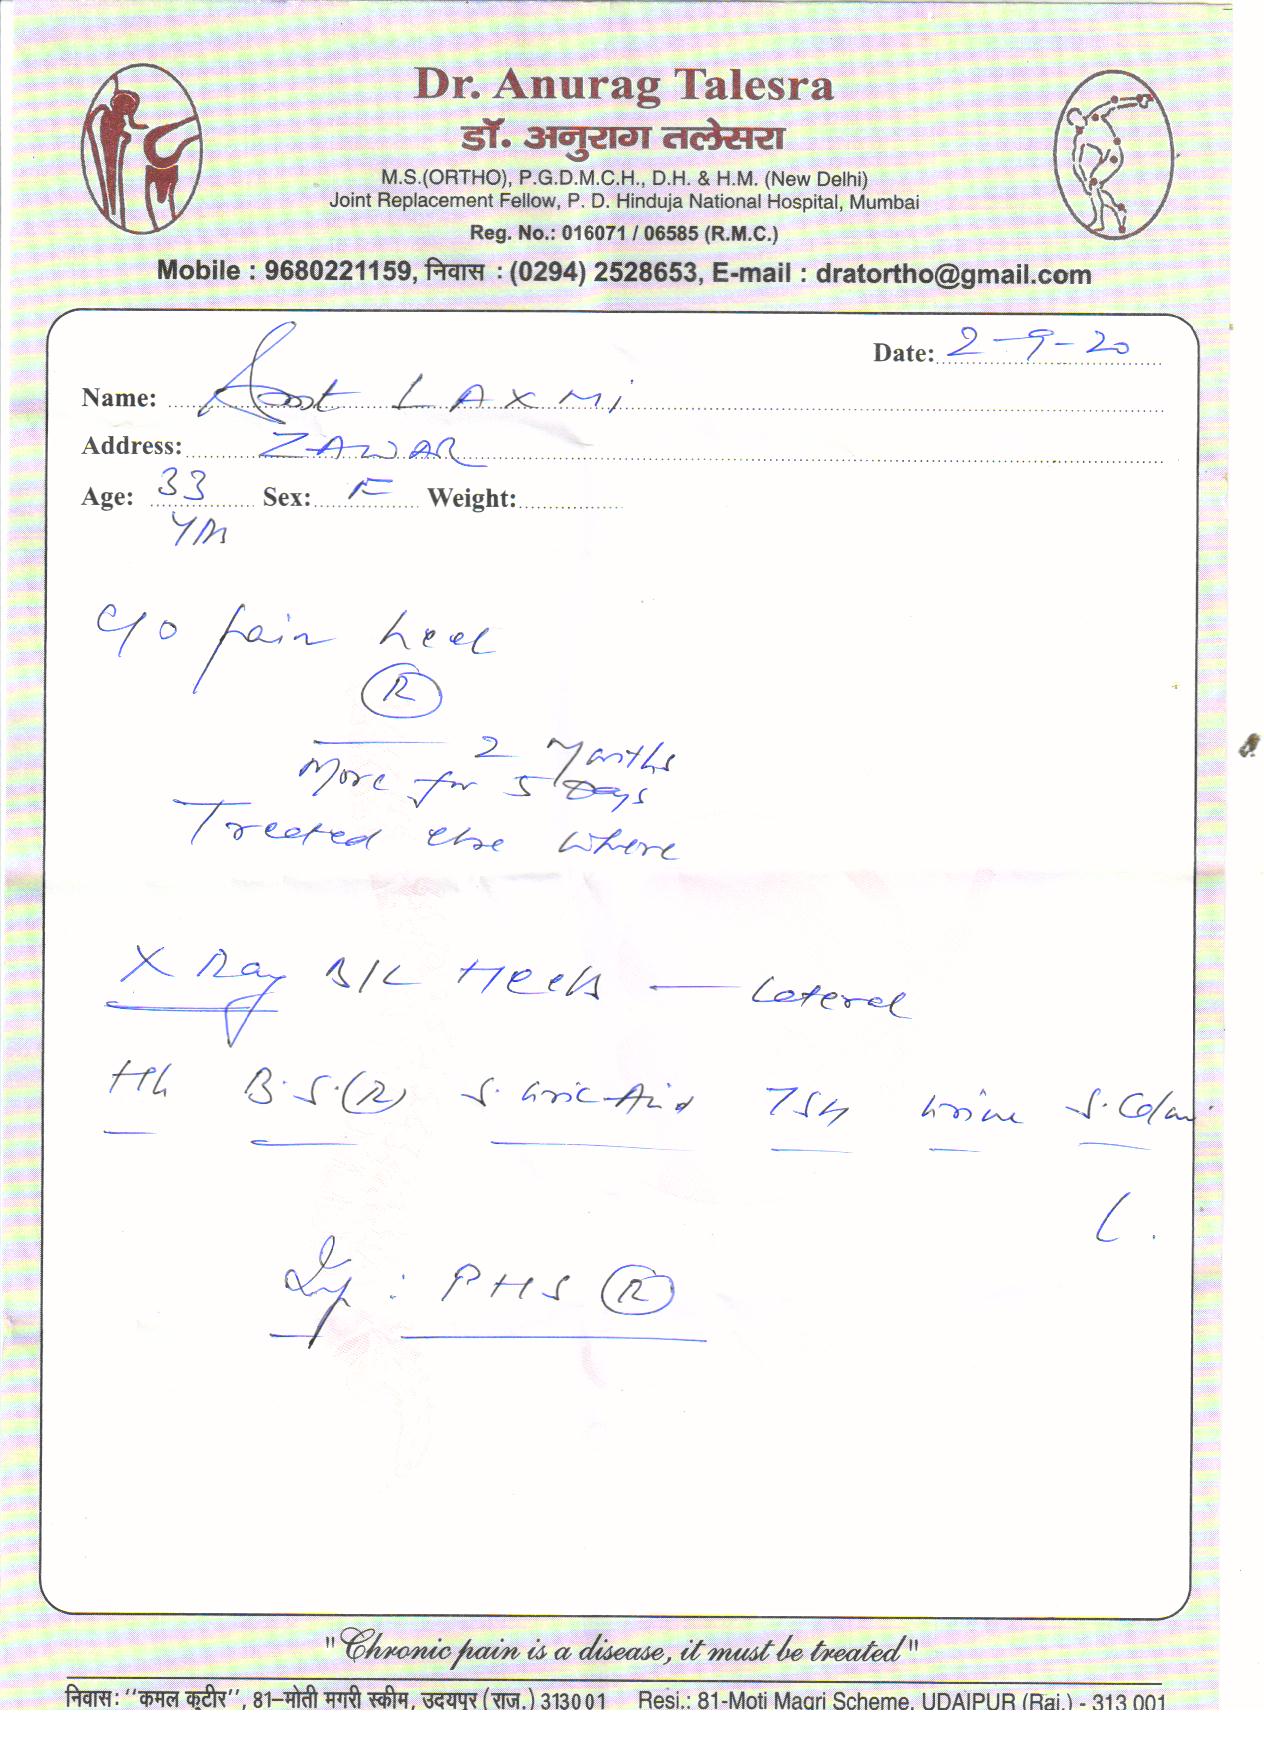 Dr. Anurag Talesra
डॉ. अनुराग तलेसरा
M.S.(ORTHO), P.G.D.M.C.H., D.H. & H.M. (New Delhi)
Joint Replacement Fellow, P. D. Hinduja National Hospital, Mumbai
Reg. No.: 016071 / 06585 (R.M.C.)
Mobile : 9680221159, निवास : (0294) 2528653, E-mail : dratortho@gmail.com
Date: 2-9-20
Name: LAXMI
Address: ZAWAR
Age: 33 Sex: F Weight:
C/o pain heel
R
2 Months
More for 5 Days
Treated else where
X Ray B/L Heels — Lateral
Hb B.S.(R) S. Uric Acid TSH Urine
: PHS R
"Chronic pain is a disease, it must be treated"
निवास: "कमल कुटीर", 81–मोती मगरी स्कीम, उदयपुर (राज.) 313001 Resi.: 81-Moti Magri Scheme, UDAIPUR (Raj.) - 313 001